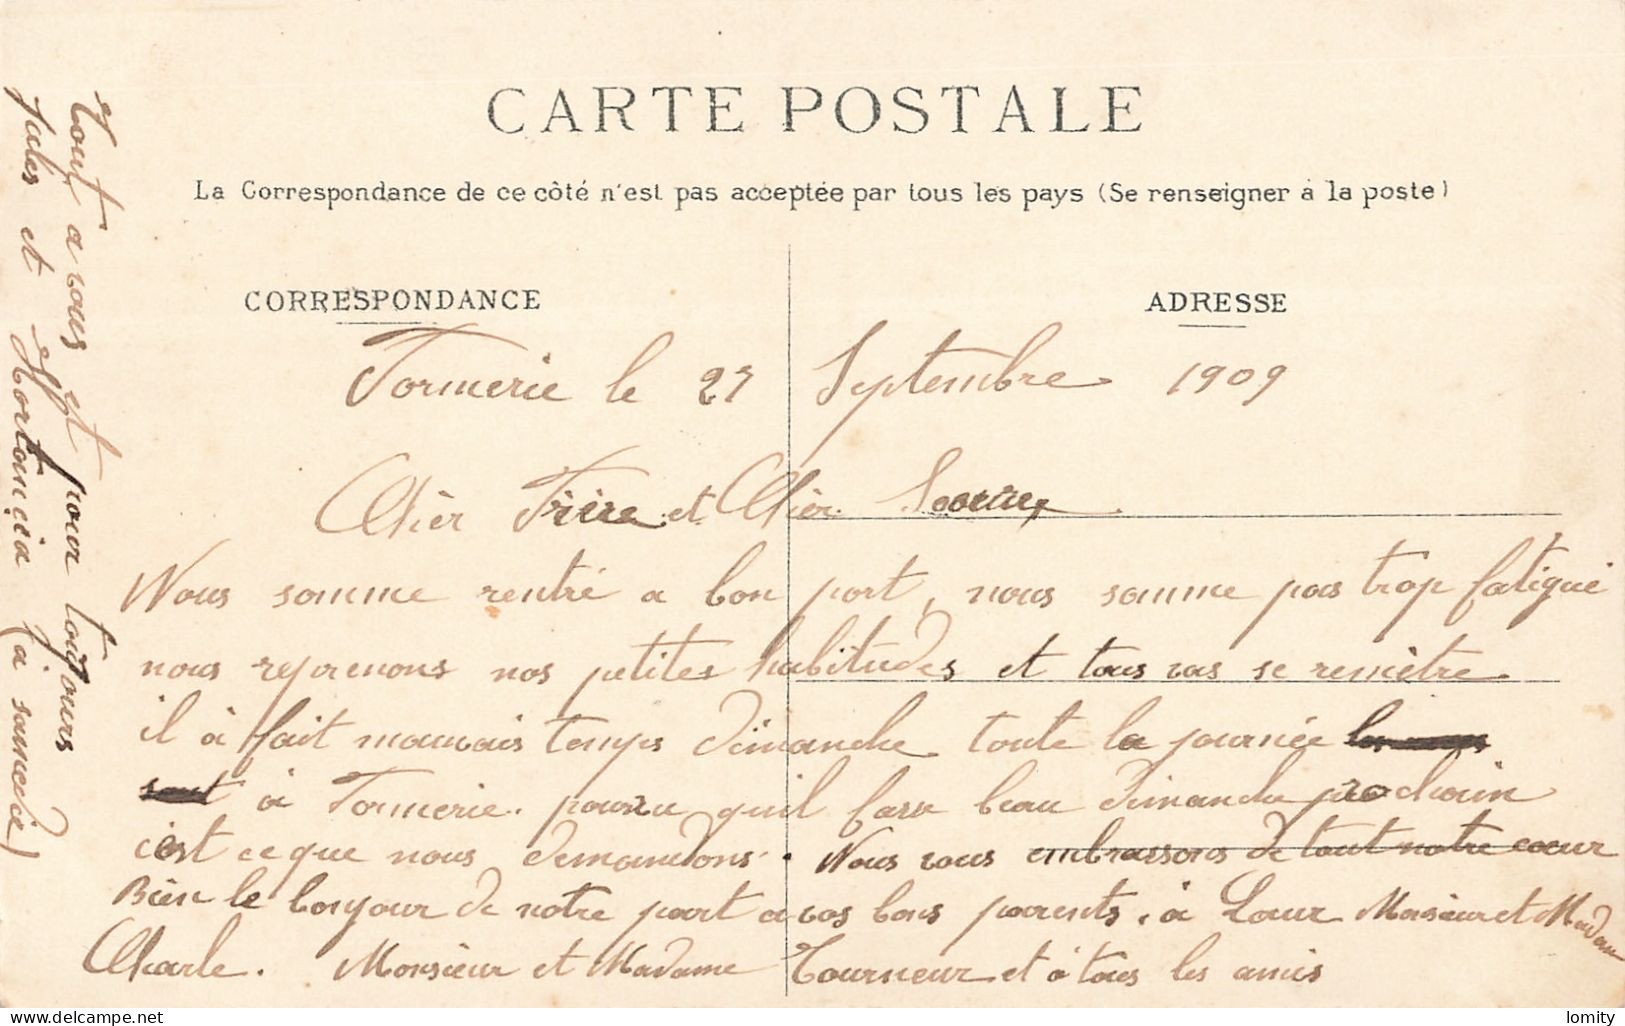 CARTE POSTALE
La Correspondance de ce côté n'est pas acceptée par tous les pays (Se renseigner à la poste)
CORRESPONDANCE
ADRESSE
Formerie le 27 Septembre 1909
Chèr Frère et Chèr Soeur
Nous somme rentré a bon port, nous somme pas trop fatigué
nous reprenons nos petites habitudes et tous vas se remètre
il à fait mauvais temps dimanche toute la journée
à Formerie. pourvu quil fase beau dimanche prochain
c'est ce que nous demandons. Nous vous embrassons de tout notre coeur
Bien le bonjour de notre part a vos bons parents, à Monsieur et Madame
Charle. Monsieur et Madame Tourneur et à tous les amis
Tout a vous et pour toujours
Jules et Hortancia (à samedi)
lomity